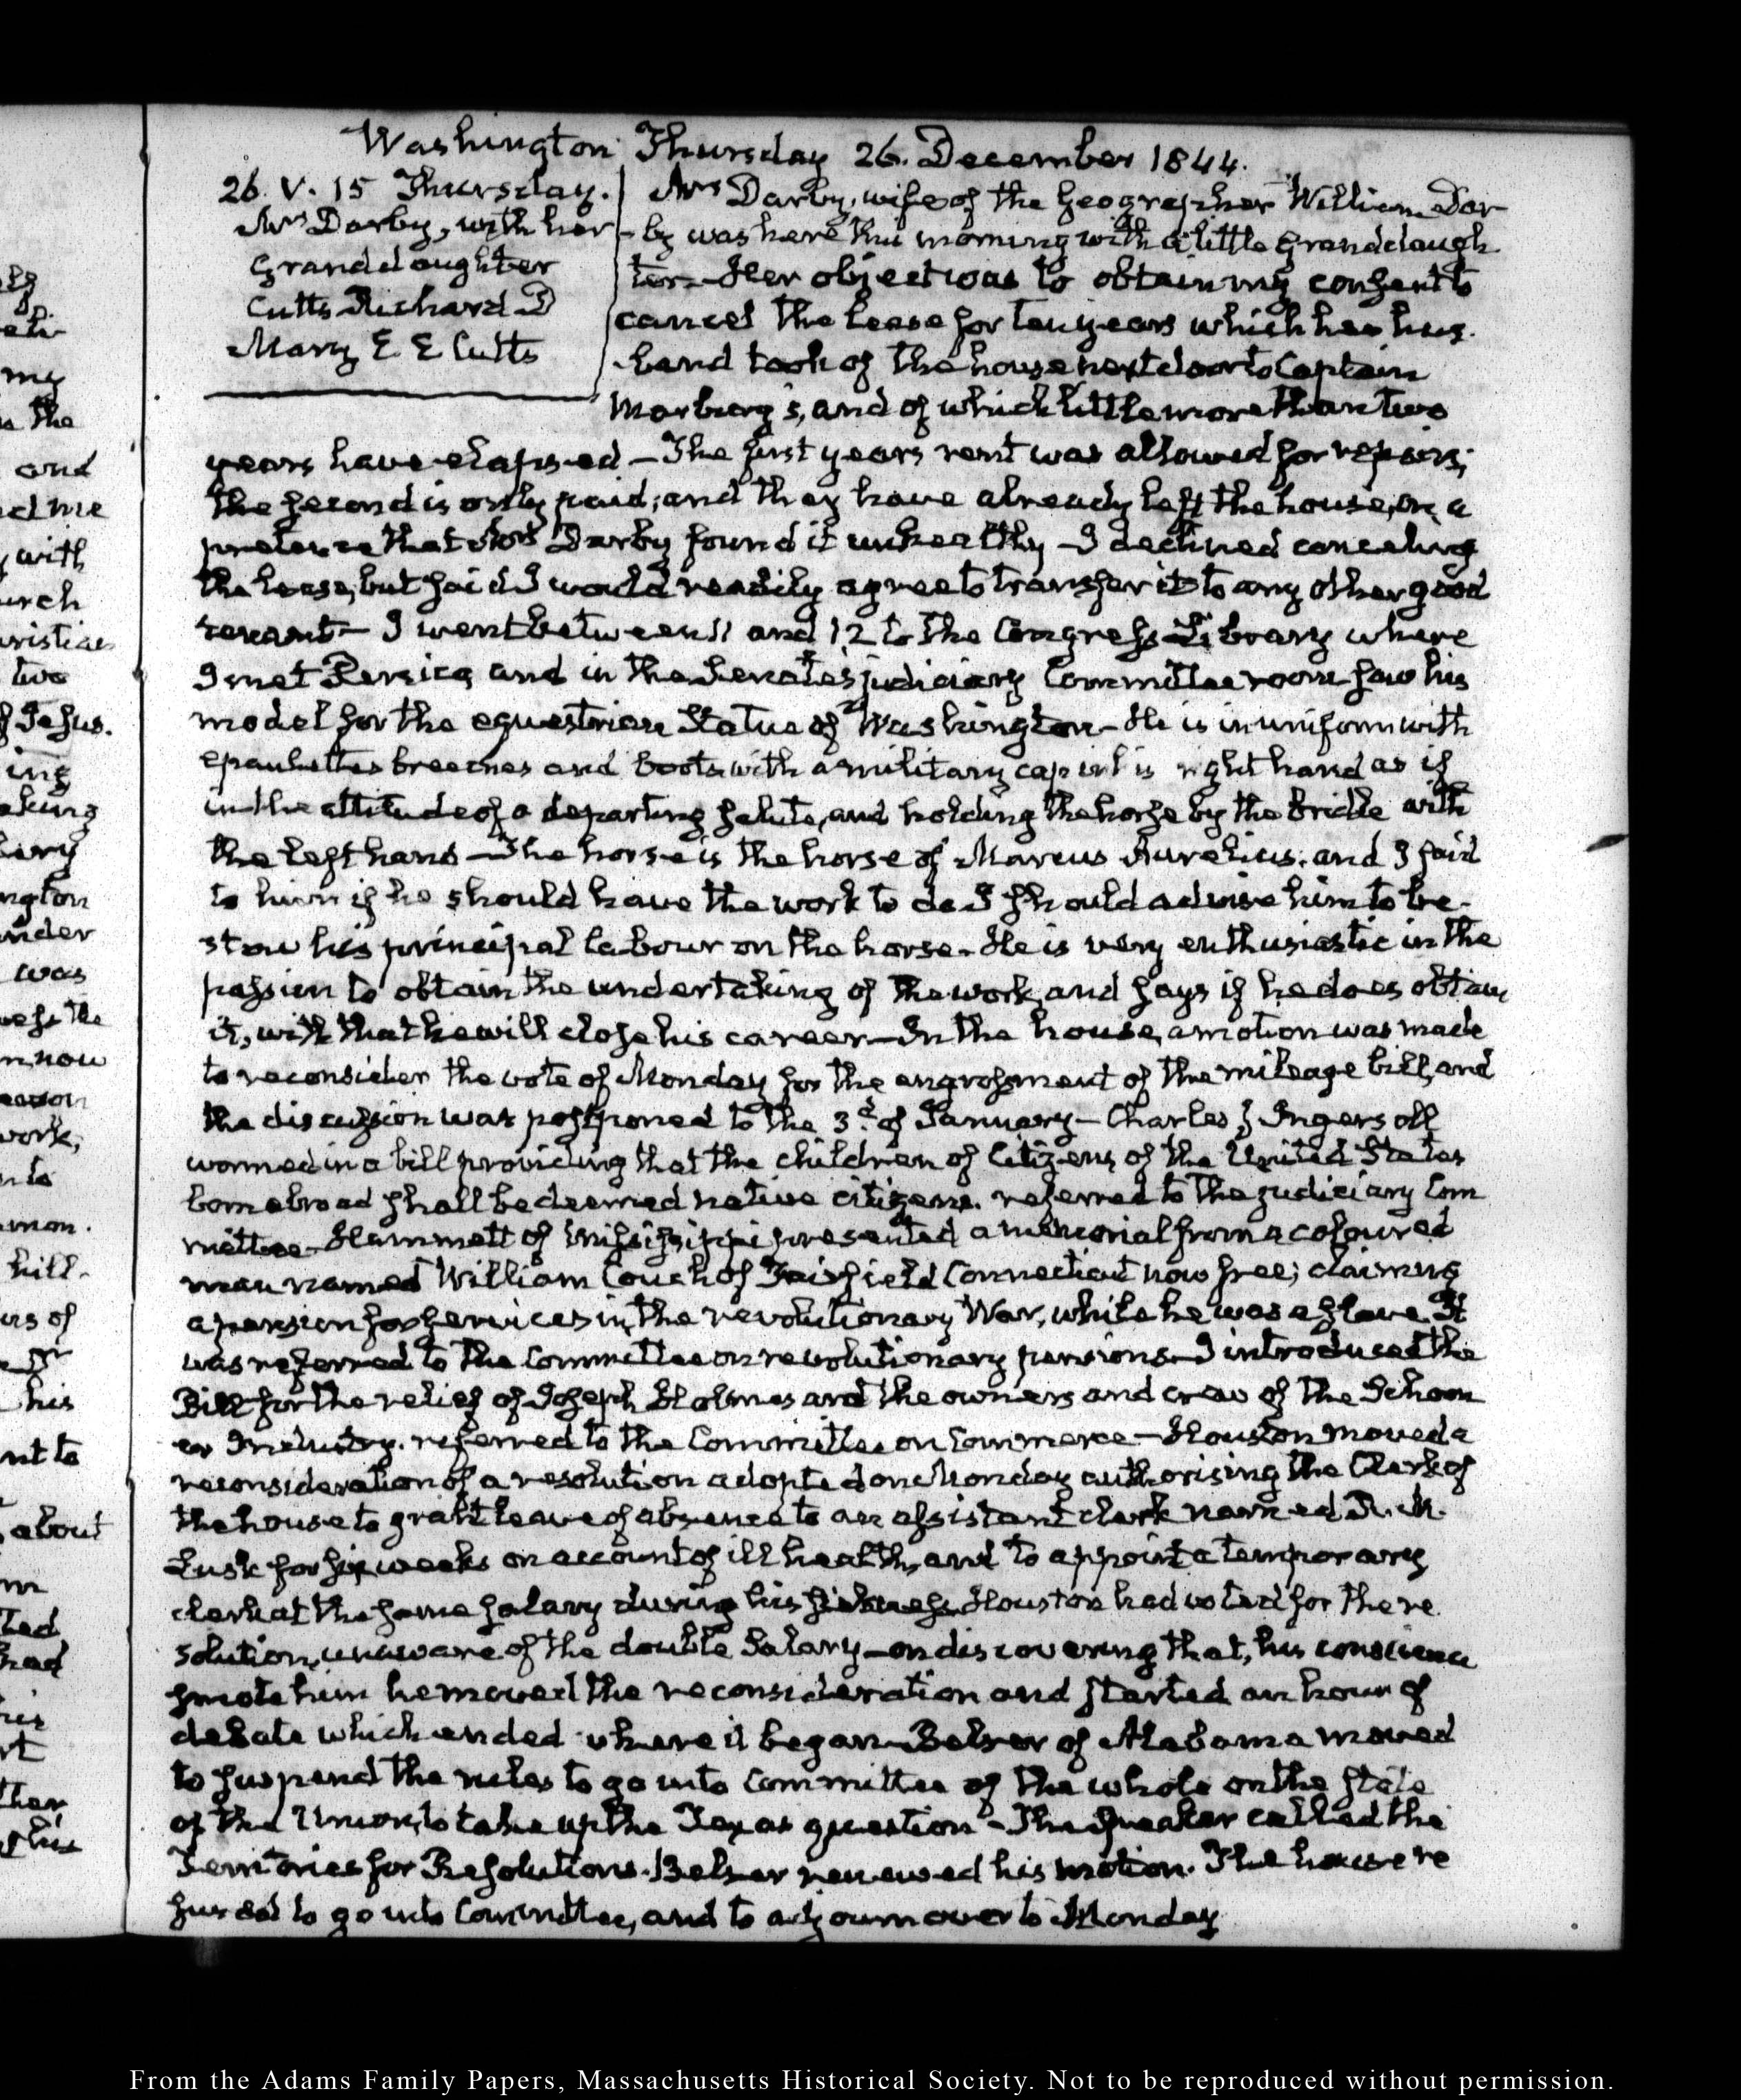 Washington Thursday 26. December 1844.
26. V. 15 Thursday.
Mrs Darby, with her
Granddaughter
Cutts Richard D
Mary E E Cutts
Mrs Darby, wife of the Geographer William Dar-
by was here this morning with a little Granddaugh-
ter. Her object was to obtain my consent to
cancel the lease for ten years which her hus-
band took of the house next door to Captain
Marbury's, and of which little more than two
years have elapsed — The first years rent was allowed for repairs;
the second is only paid; and they have already left the house, on a
pretence that Mrs Darby found it unhealthy — I declined canceling
the lease, but said I would readily agree to transfer it to any other good
tenant — I went between 11 and 12 to the Congress Library where
I met Persico and in the Senate's judiciary Committee room saw his
model for the equestrian Statue of Washington — He is in uniform with
epaulettes breeches and boots with a military cap in his right hand as if
in the attitude of a departing salute, and holding the horse by the bridle with
the left hand — The horse is the horse of Marcus Aurelius; and I said
to him if he should have the work to do I should advise him to be-
stow his principal labour on the horse. He is very enthusiastic in the
passion to obtain the undertaking of the work, and says if he does obtain
it, with that he will close his career — In the house, a motion was made
to reconsider the vote of Monday for the engrossment of the mileage bill, and
the discussion was postponed to the 3d. of January — Charles J Ingersoll
wormed in a bill providing that the children of Citizens of the United States
born abroad shall be deemed native citizens. referred to the judiciary Com
mittee — Hammett of Mississippi presented a memorial from a coloured
man named William Couch of Fairfield Connecticut now free; claiming
a pension for services in the revolutionary War, while he was a slave. It
was referred to the Committee on revolutionary pensions — I introduced the
Bill for the relief of Joseph Holmes and the owners and crew of the Schoon
er Industry. referred to the Committee on Commerce — Houston moved a
reconsideration of a resolution adopted on Monday authorising the Clerk of
the house to grant leave of absence to an assistant clerk named
Lusk for six weeks on account of ill health, and to appoint a temporary
clerk at the same salary during his sickness. Houston had voted for the re
solution, unaware of the double Salary — on discovering that, his conscience
smote him he moved the reconsideration and started an hour of
debate which ended where it began — Belser of Alabama moved
to suspend the rules to go into Committee of the whole on the State
of the Union, to take up the Texas question — The Speaker called the
Territories for Resolutions. Belser renewed his motion. The house re
fused to go into Committee, and to adjourn over to Monday
ing
my
the
and
with
two
was
his
about
hill.
From the Adams Family Papers, Massachusetts Historical Society. Not to be reproduced without permission.